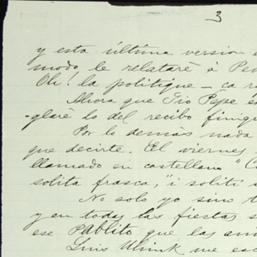 3
y esta última version e
modo le relataré à Pe
Oh! la politique - ca r
Ahora que Tio Pepe es
glaré lo del recibo finiq
Por lo demás nada
que decirte. El viernes
llamado en castellano "C
solita frasca, "i soliti
No solo yo sino t
y en todas las fiestas s
ese Pablito que las an
Luis Ulink me esc